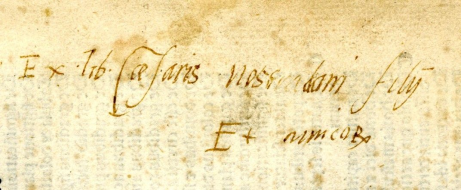 Ex lib Cæsaris Nostradami filij
Et amicorꝝ